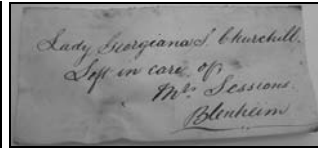 Lady Georgiana S. Churchill.
Left in care of
Mrs. Sessions.
Blenheim